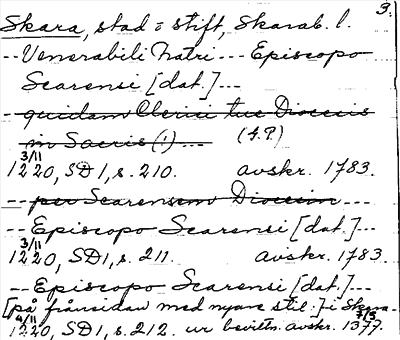 3.
Skara, stad o stift, Skarab. l.
-- Venerabili Fratri --- Episcopo
Scarensi [dat.]---
-- quidam Clerici tue Diocesis
in Sacris (!) --- (F.P.)
3/11
1220, SD 1, s. 210. avskr. 1783.
--- per Scarensem Diocesin ---
-- Episcopo Scarensi [dat.]---
3/11
1220, SD 1, s. 211. avskr. 1783.
-- Episcopo Scarensi [dat.]---
[på frånsidan med nyare stil:] i Skara.
4/11 7/3
1220, SD 1, s. 212. ur bevittn. avskr. 1377.